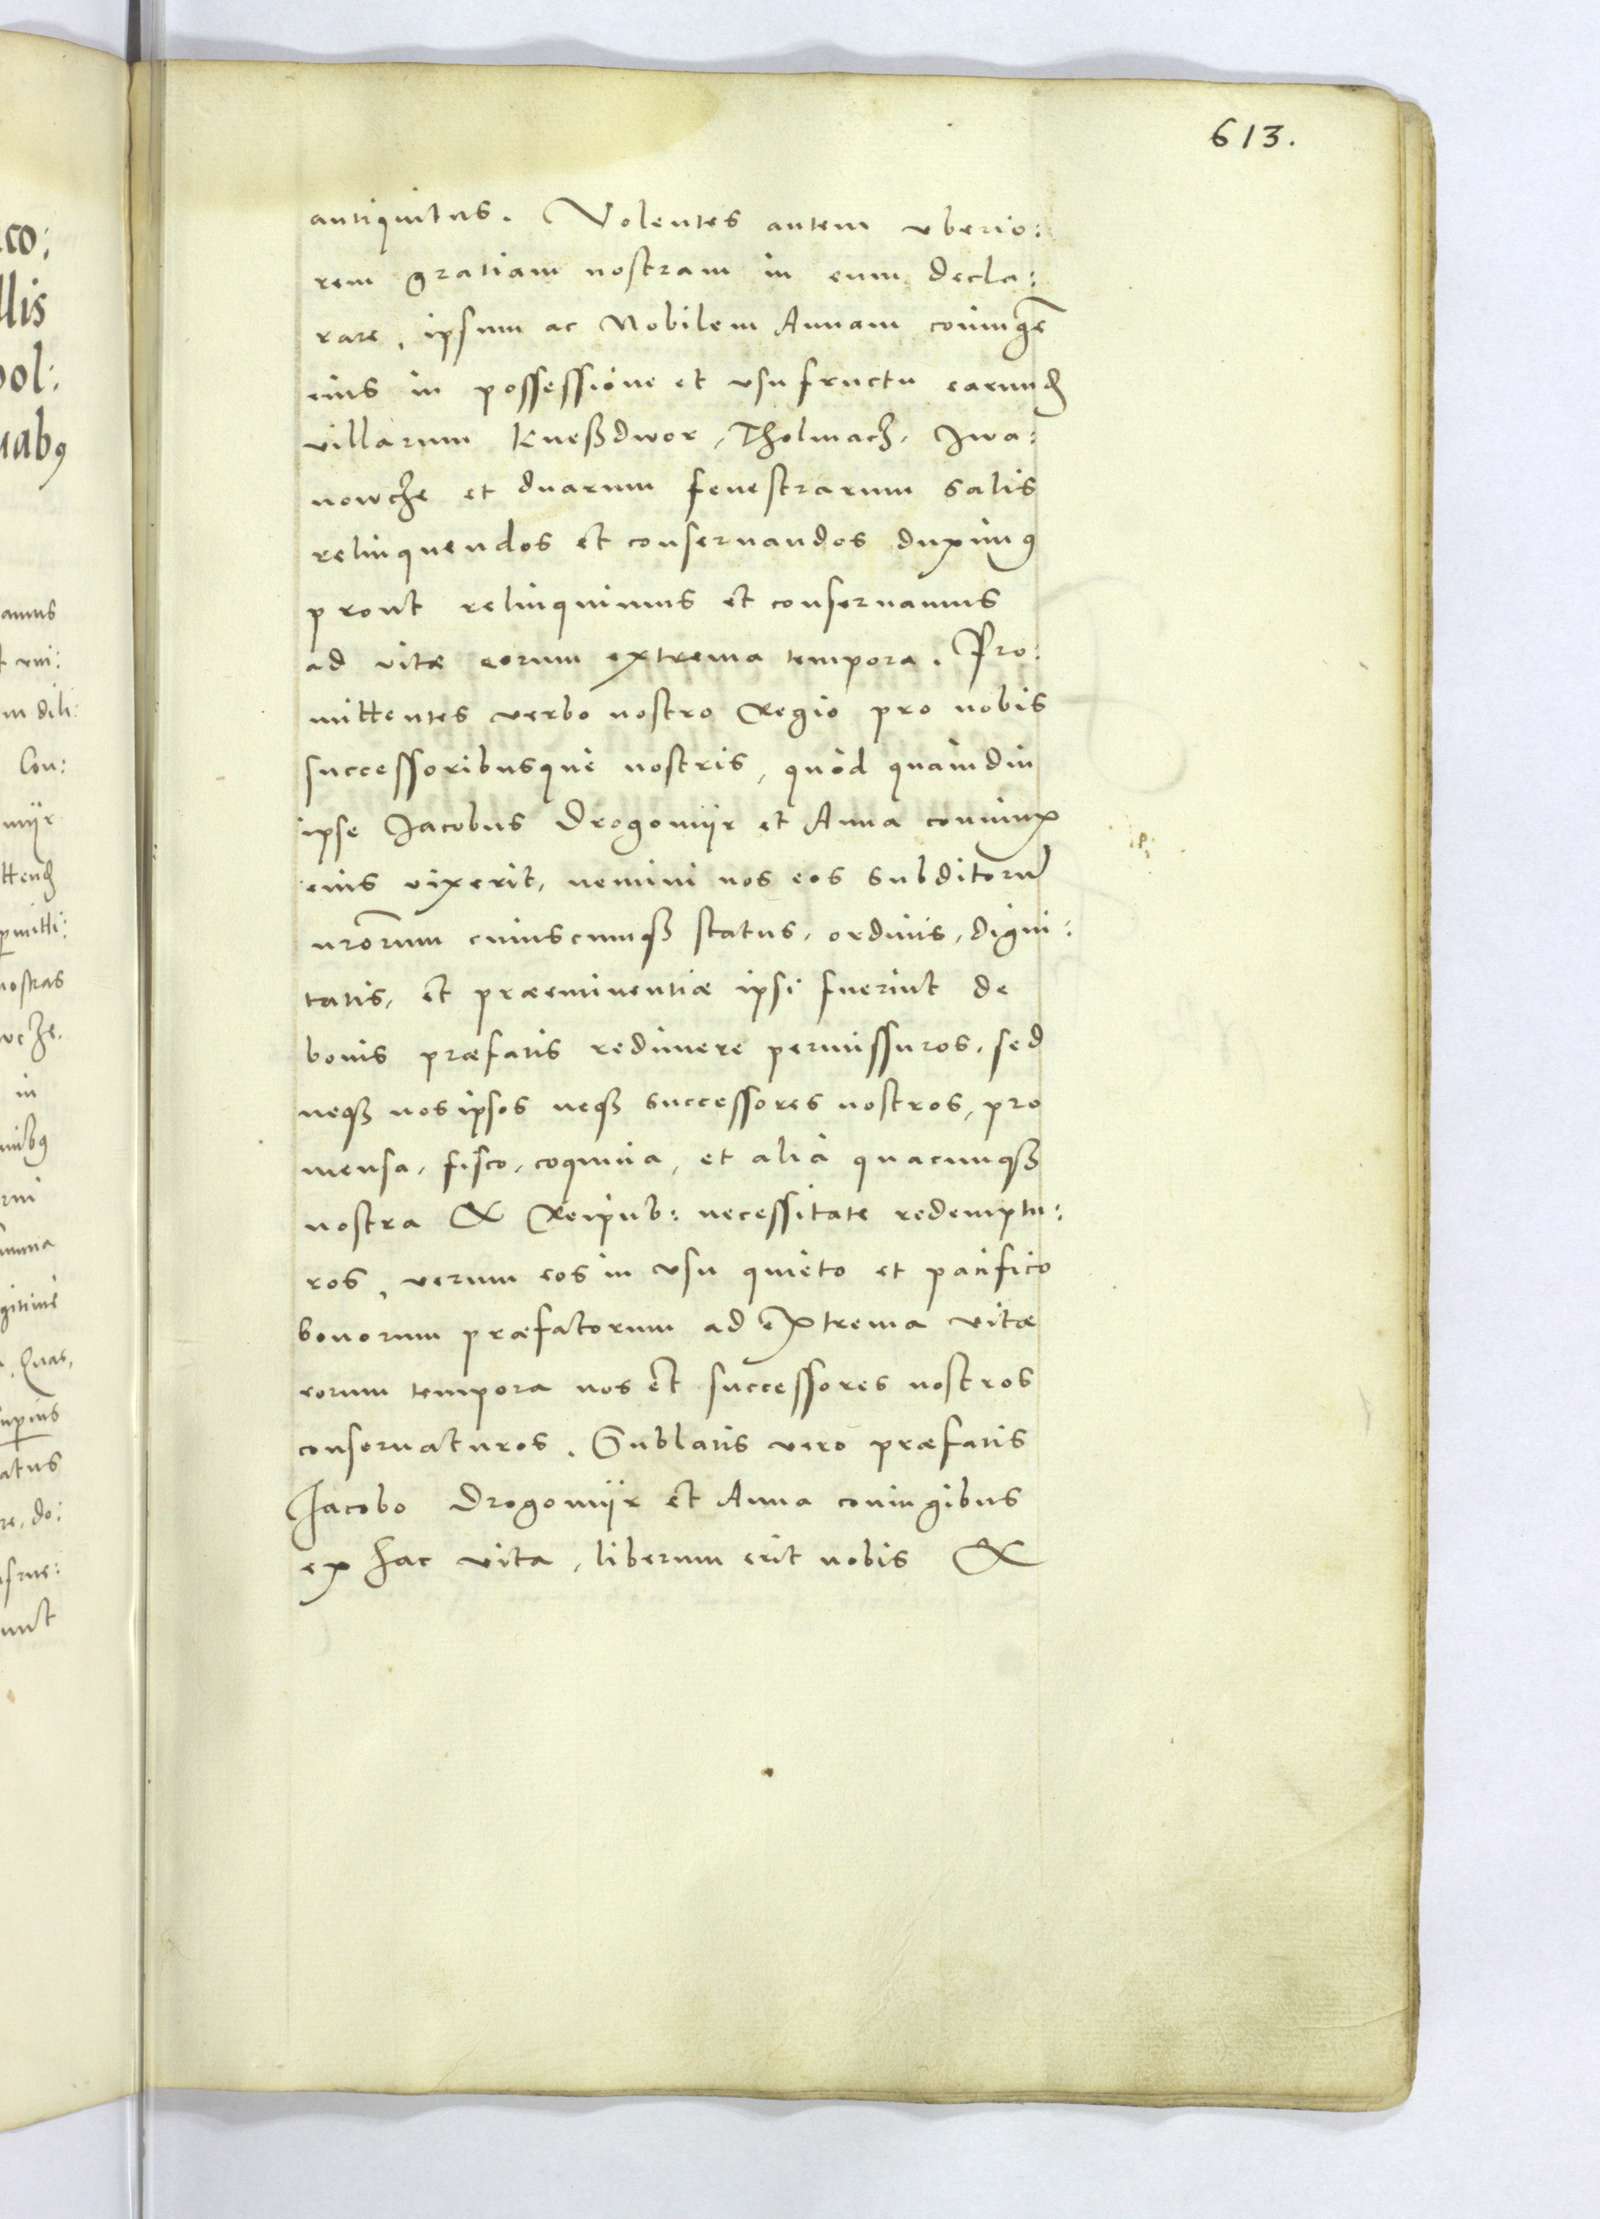 613.
antiquitus. Volentes autem vberio:
rem gratiam nostram in eum decla:
rare, ipsum ac Nobilem Annam coniugē
eius in possessione et vsufructu earund
villarum Kneßdwor, Tholmach, Iwa:
nowche et duarum fenestrarum salis
relinquendos et conseruandos duximus
prout relinquimus et conseruamus
ad vitæ eorum extrema tempora. Pro:
mittentes verbo nostro Regio pro nobis
successoribusque nostris, quòd quamdiu
ipse Iacobus Drogomijr et Anna coniunx
eius vixerit, nemini nos eos subditorum
nrōrum cuiuscunqз status, ordinis, digni:
tatis, et præeminentiæ ipsi fuerint de
bonis præfatis redimere permissuros, sed
neqз nos ipsos neqз successores nostros, pro
mensa, fisco, coquina, et alia quacunqз
nostra & Reipub: necessitate redemptu:
ros, verum eos in vsu quieto et pacifico
bonorum præfatorum ad extrema vitæ
eorum tempora nos et successores nostros
conseruaturos. Sublatis vero præfatis
Iacobo Drogomijr et Anna coniugibus
ex hac vita, liberum erit nobis &
co:
llis
ol:
uabus
amus
m dili:
Con:
mijr
nostras
wche.
in
nibus
gitimè
Quas,
atus
re, do: